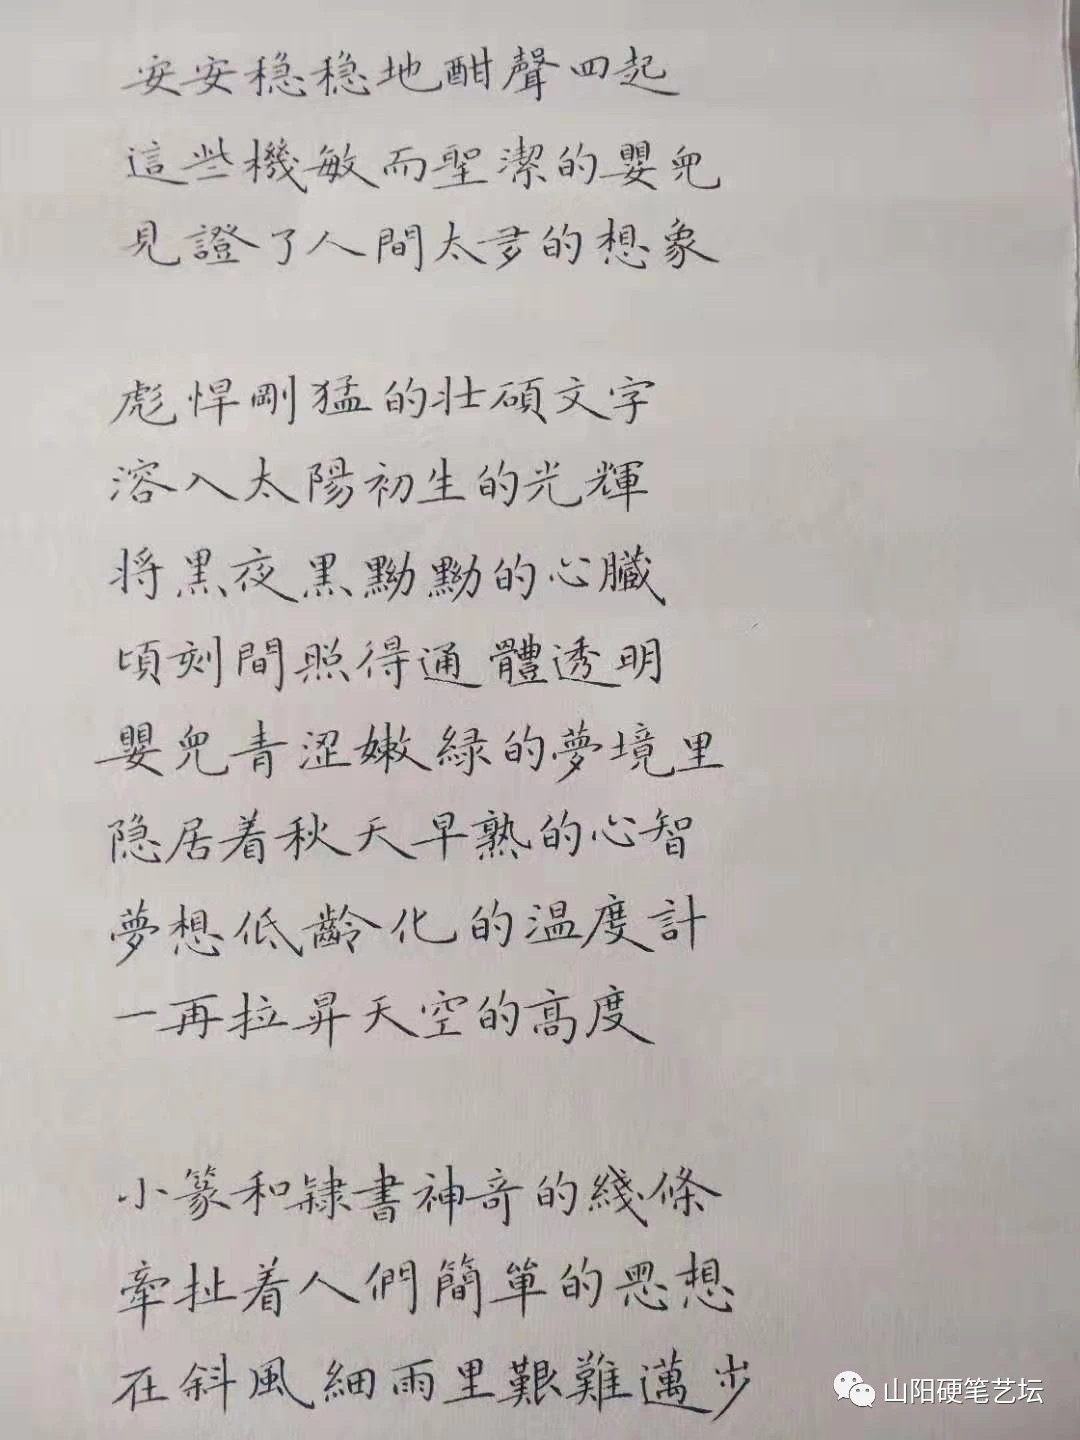 安安稳稳地酣聲四起
這些機敏而聖潔的嬰兒
見證了人間太多的想象
彪悍剛猛的壯碩文字
溶入太陽初生的光輝
將黑夜黑黝黝的心臟
頃刻間照得通體透明
嬰兒青涩嫩綠的夢境里
隐居着秋天早熟的心智
夢想低齡化的温度計
一再拉昇天空的高度
小篆和隸書神奇的綫條
牽扯着人們簡單的思想
在斜風細雨里艱難邁步
山阳硬笔艺坛